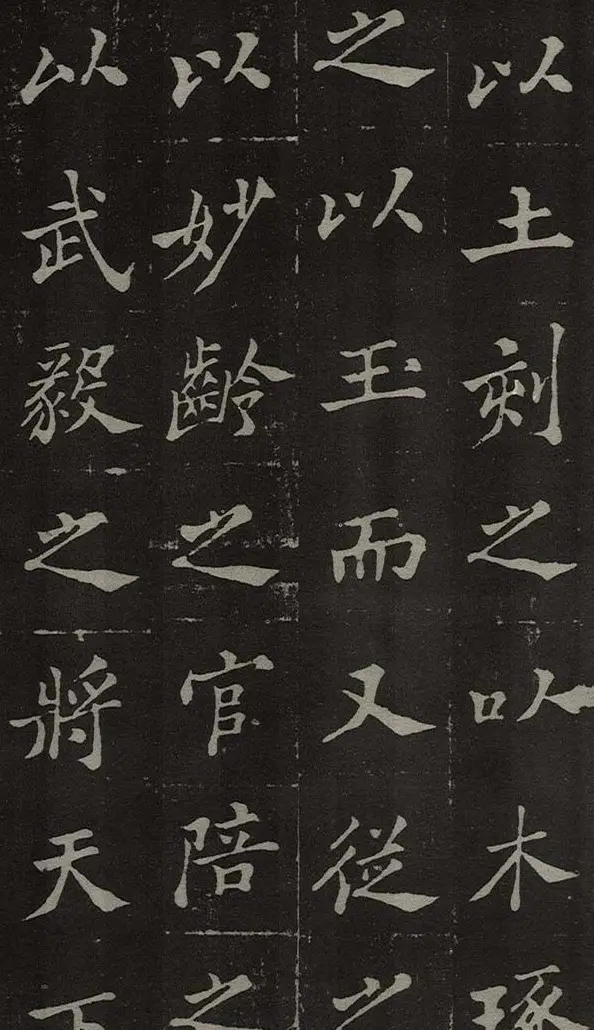 以土刻之以木琢
之以玉而又從以
以妙齡之官陪之
以武毅之將天下